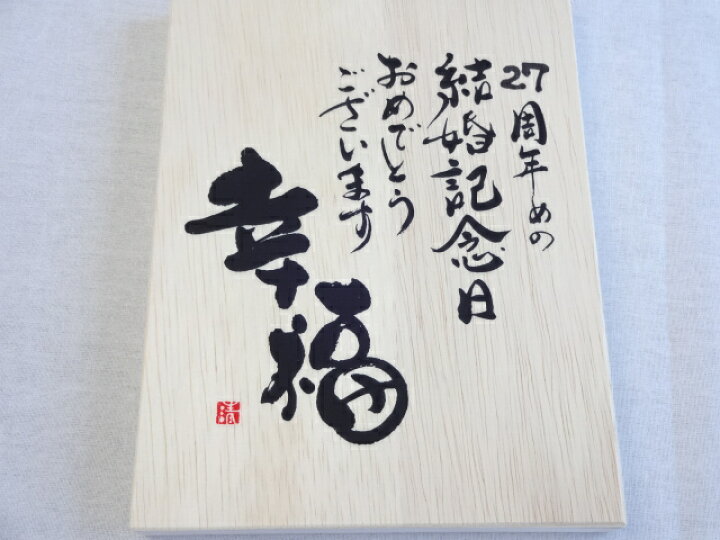 27周年めの
結婚記念日
おめでとう
ございます
幸福
清